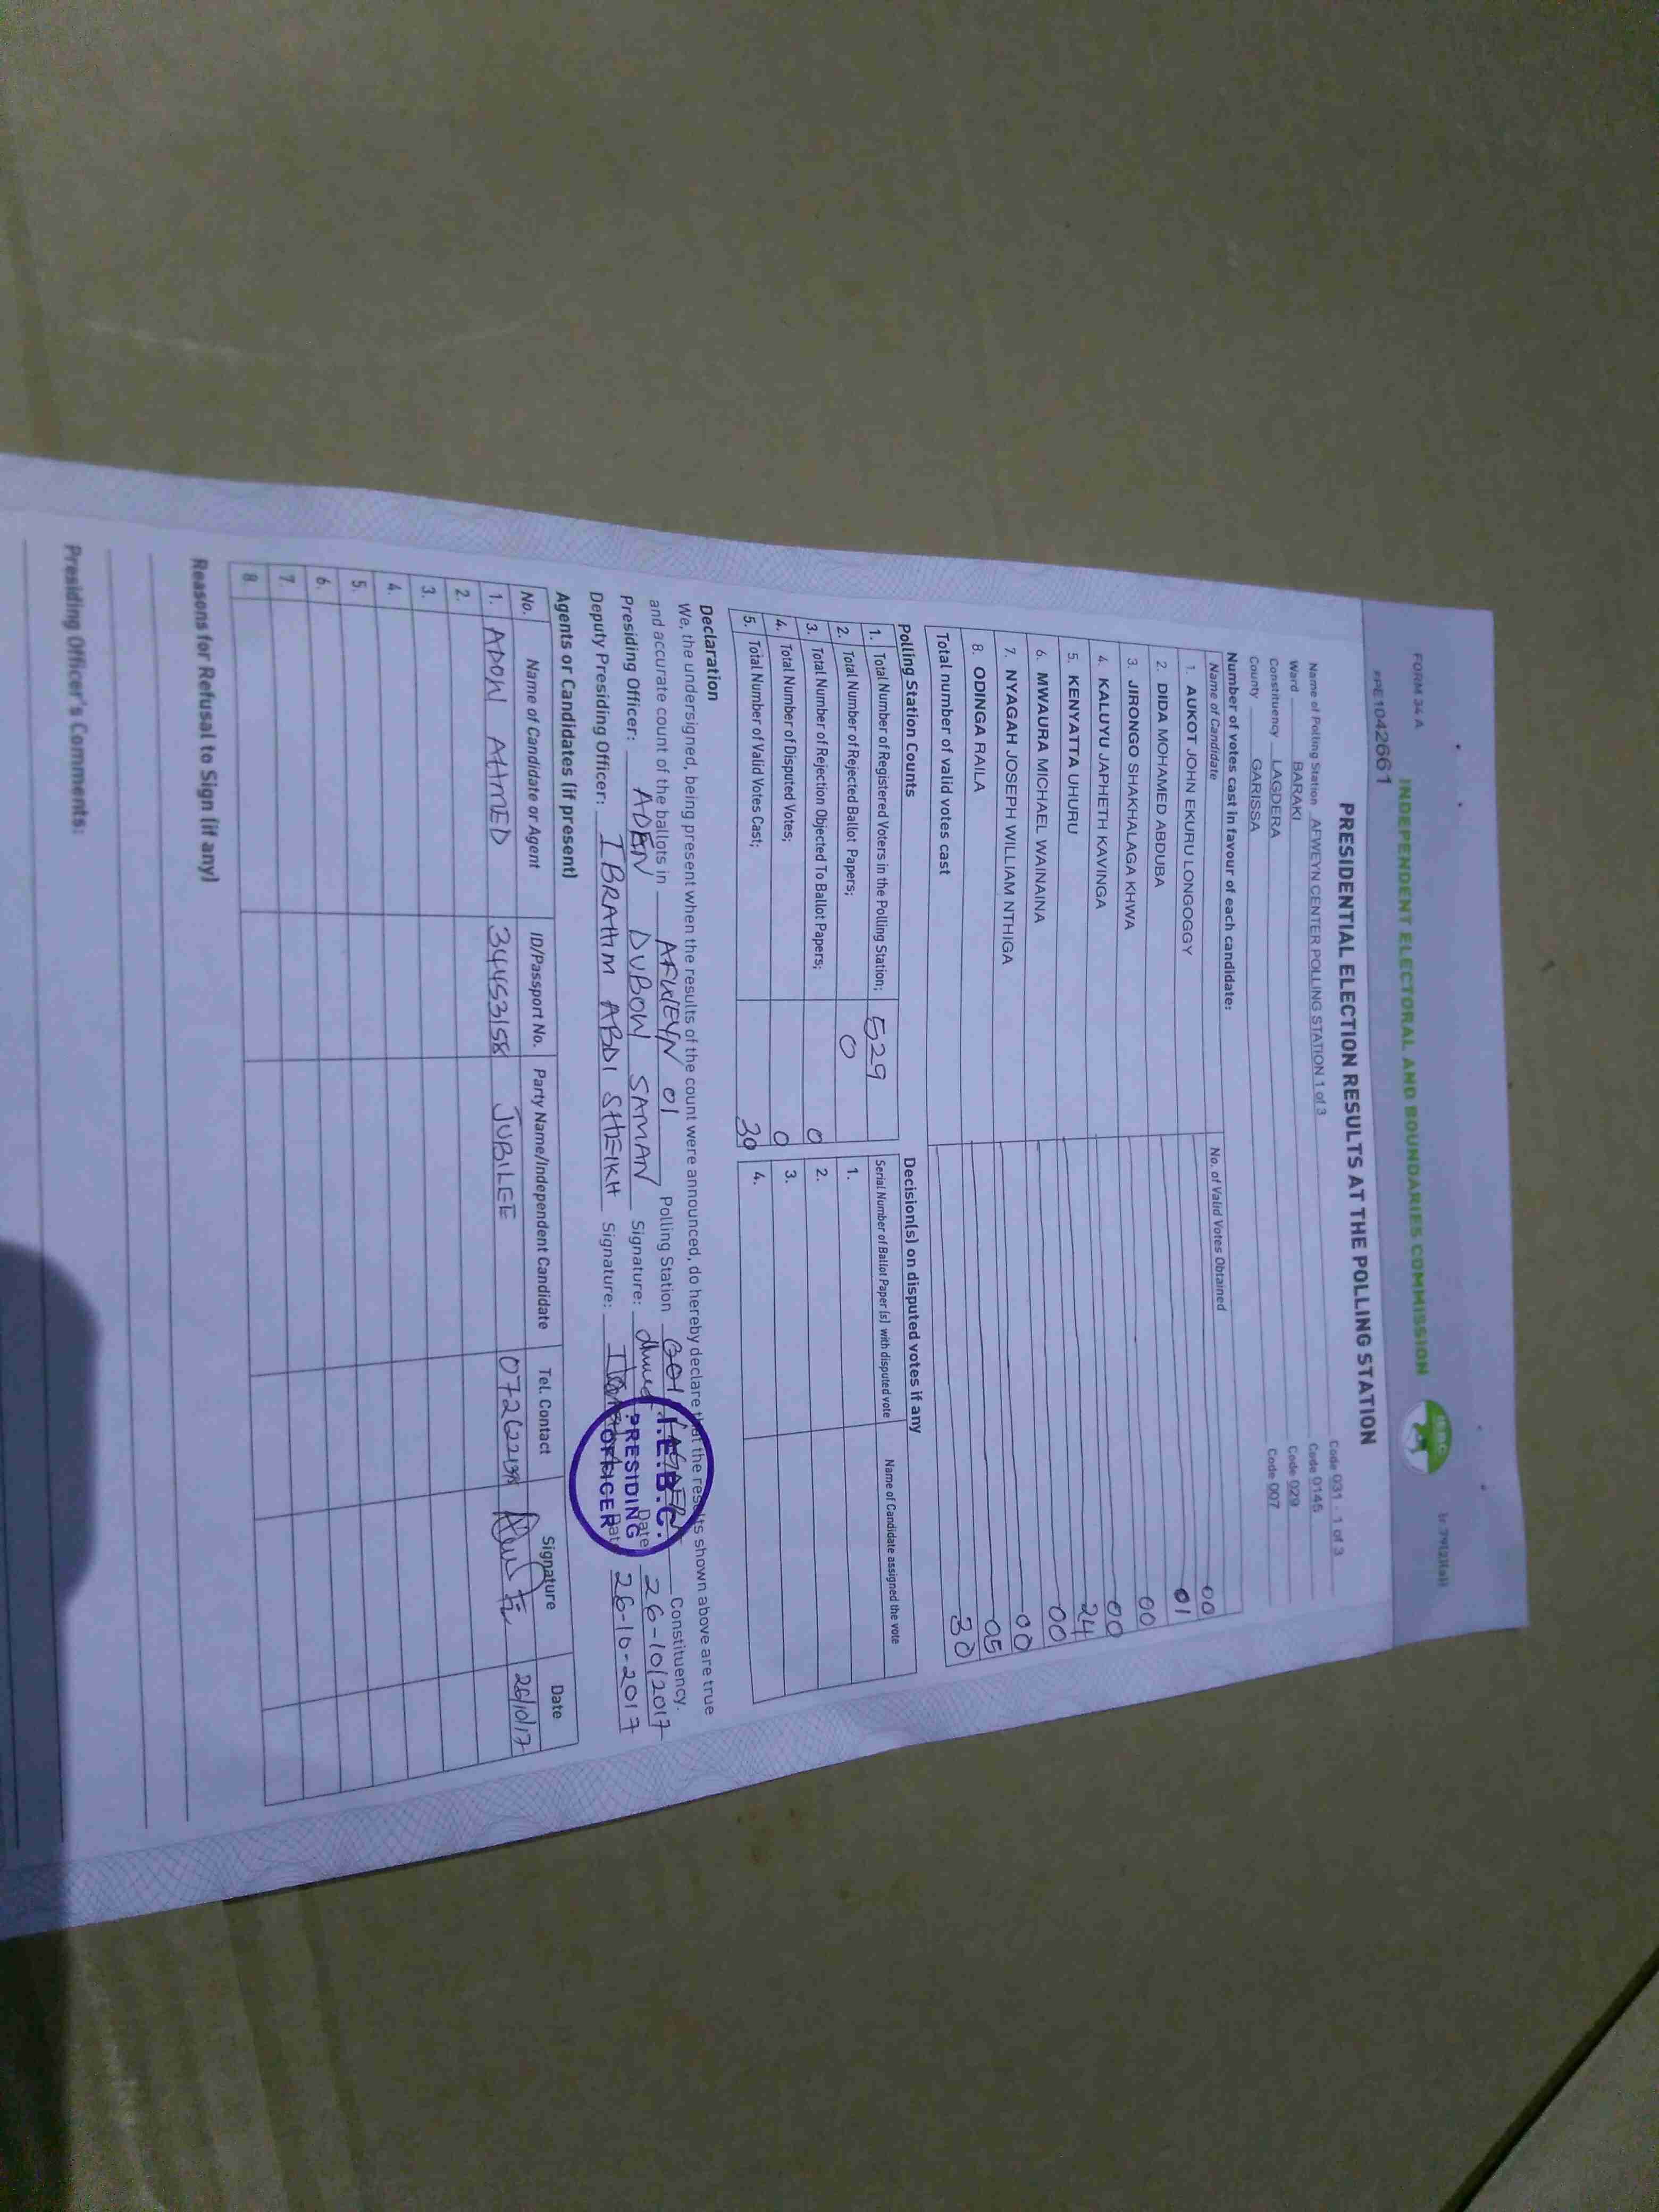 FORM 34 A
INDEPENDENT ELECTORAL AND BOUNDARIES COMMISSION
IEBC
PPE1042661
PRESIDENTIAL ELECTION RESULTS AT THE POLLING STATION
Name of Polling Station AFWEYN CENTER POLLING STATION 1 of 3 Code 031 - 1 of 3
Ward BARAKI Code 0145
Constituency LAGDERA Code 029
County GARISSA Code 007
Number of votes cast in favour of each candidate:
Name of Candidate No. of Valid Votes Obtained
1. AUKOT JOHN EKURU LONGOGGY 00
2. DIDA MOHAMED ABDUBA 01
3. JIRONGO SHAKHALAGA KHWA 00
4. KALUYU JAPHETH KAVINGA 00
5. KENYATTA UHURU 24
6. MWAURA MICHAEL WAINAINA 00
7. NYAGAH JOSEPH WILLIAM NTHIGA 00
8. ODINGA RAILA 05
Total number of valid votes cast 30
Polling Station Counts Decision(s) on disputed votes if any
1. Total Number of Registered Voters in the Polling Station; 529 Serial Number of Ballot Paper(s) with disputed vote Name of Candidate assigned the vote
2. Total Number of Rejected Ballot Papers; 0 1.
3. Total Number of Rejection Objected To Ballot Papers; 0 2.
4. Total Number of Disputed Votes; 0 3.
5. Total Number of Valid Votes Cast; 30 4.
Declaration
We, the undersigned, being present when the results of the count were announced, do hereby declare that the results shown above are true
and accurate count of the ballots in AFWEYN 01 Polling Station Constituency.
Presiding Officer: ADEN DUBOW SAMAN Signature: Date 26-10/2017
Deputy Presiding Officer: IBRAHIM ABDI SHEIKH Signature: Date 26-10-2017
I.E.B.C.
PRESIDING
OFFICER
Agents or Candidates (if present)
No. Name of Candidate or Agent ID/Passport No. Party Name/Independent Candidate Tel. Contact Signature Date
1. ADOW AHMED 34453158 JUBILEE 26/10/17
2.
3.
4.
5.
6.
7.
8.
Reasons for Refusal to Sign (if any)
Presiding Officer's Comments: